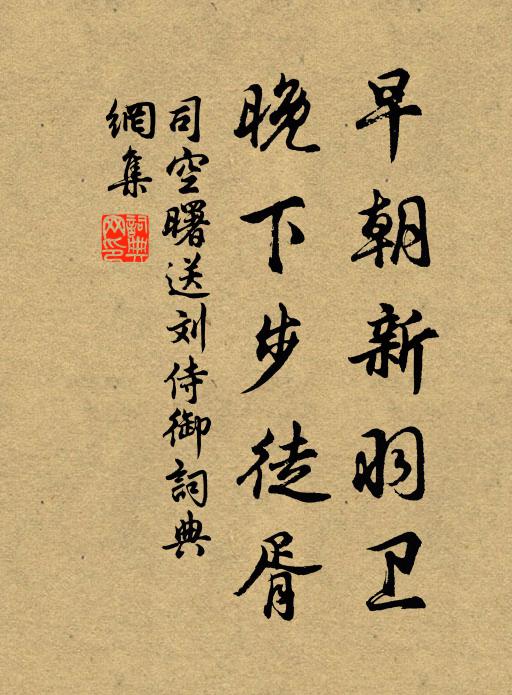 早朝新羽卫
晚下步徒胥
司空曙送刘侍御詞典
網集
詞典
网印